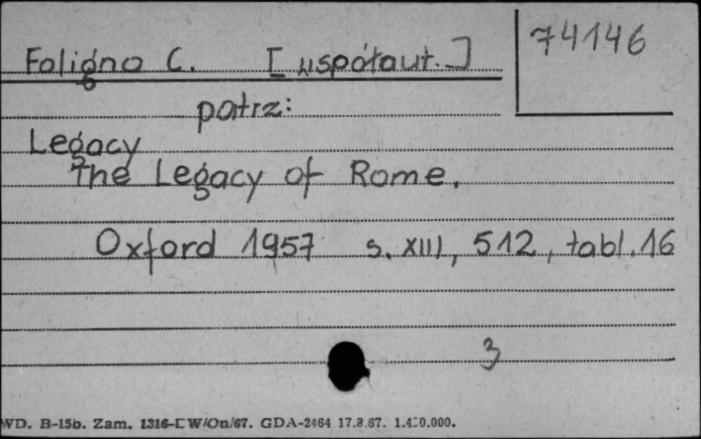 74146
Foligno C. [współaut.]
patrz:
Legacy
the Legacy of Rome.
Oxford 1957 s. XIII, 512, tabl. 16
3
WD. B-15b. Zam. 1316-LW/On/67. GDA-2464 17.8.67. 1.400.000.